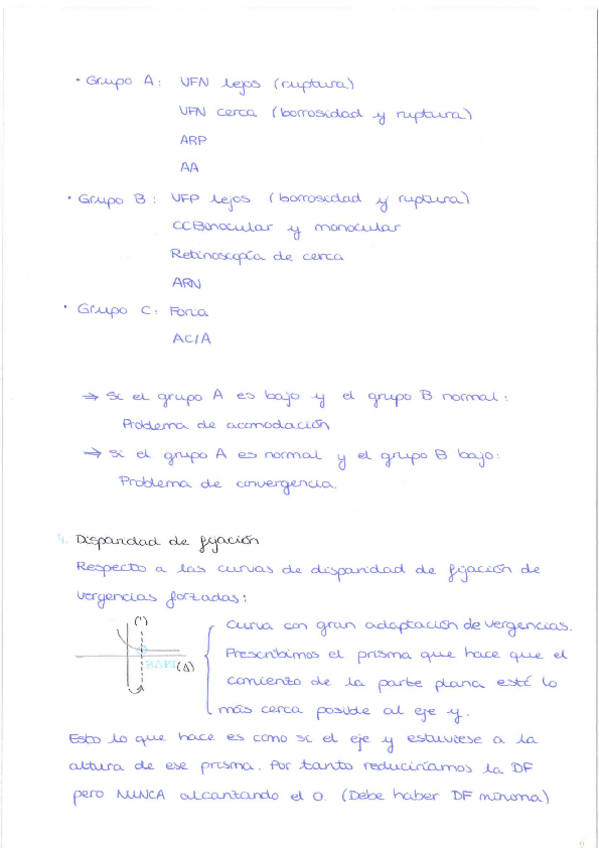 · Grupo A: VFN lejos (ruptura)
VFN cerca (borrosidad y ruptura)
ARP
AA
· Grupo B: VFP lejos (borrosidad y ruptura)
CCBinocular y monocular
Retinoscopía de cerca
ARN
· Grupo C: Foria
AC/A
→ Si el grupo A es bajo y el grupo B normal:
Problema de acomodación
→ Si el grupo A es normal y el grupo B bajo:
Problema de convergencia.
4. Disparidad de fijación
Respecto a las curvas de disparidad de fijación de
vergencias forzadas:
(')
(Δ)
Curva con gran adaptación de vergencias.
Prescribimos el prisma que hace que el
comienzo de la parte plana esté lo
más cerca posible al eje y.
Esto lo que hace es como si el eje y estuviese a la
altura de ese prisma. Por tanto reduciríamos la DF
pero NUNCA alcanzando el 0. (Debe haber DF mínima)